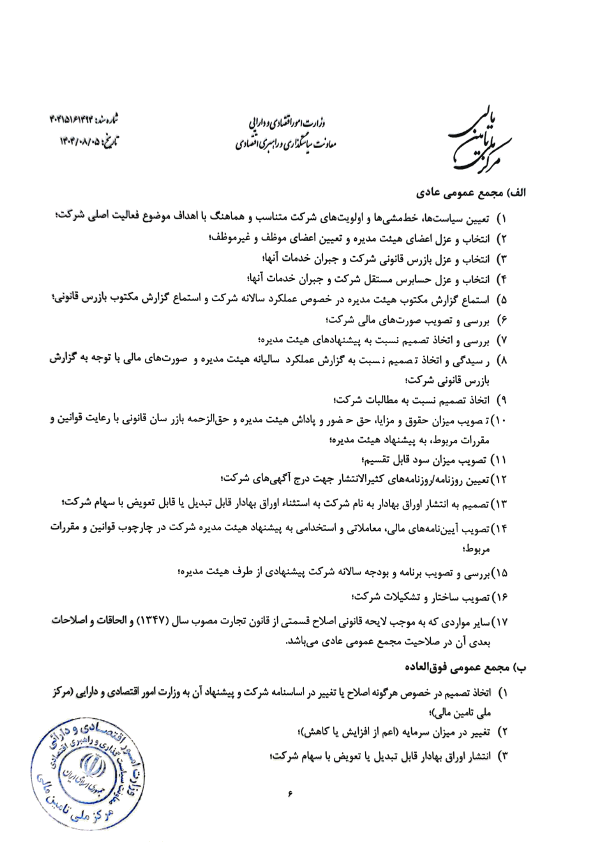 مرکز ملی تامین مالی
وزارت امور اقتصادی و دارایی
معاونت سیاستگذاری و راهبری اقتصادی
شماره سند: ۴۰۴۱۵۱۶۱۴۹۴
تاریخ: ۱۴۰۴/۰۸/۰۵
الف) مجمع عمومی عادی
۱) تعیین سیاست‌ها، خط‌مشی‌ها و اولویت‌های شرکت متناسب و هماهنگ با اهداف موضوع فعالیت اصلی شرکت؛
۲) انتخاب و عزل اعضای هیئت مدیره و تعیین اعضای موظف و غیرموظف؛
۳) انتخاب و عزل بازرس قانونی شرکت و جبران خدمات آنها؛
۴) انتخاب و عزل حسابرس مستقل شرکت و جبران خدمات آنها؛
۵) استماع گزارش مکتوب هیئت مدیره در خصوص عملکرد سالانه شرکت و استماع گزارش مکتوب بازرس قانونی؛
۶) بررسی و تصویب صورت‌های مالی شرکت؛
۷) بررسی و اتخاذ تصمیم نسبت به پیشنهادهای هیئت مدیره؛
۸) رسیدگی و اتخاذ تصمیم نسبت به گزارش عملکرد سالیانه هیئت مدیره و صورت‌های مالی با توجه به گزارش
بازرس قانونی شرکت؛
۹) اتخاذ تصمیم نسبت به مطالبات شرکت؛
۱۰) تصویب میزان حقوق و مزایا، حق حضور و پاداش هیئت مدیره و حق‌الزحمه بازرسان قانونی با رعایت قوانین و
مقررات مربوط، به پیشنهاد هیئت مدیره؛
۱۱) تصویب میزان سود قابل تقسیم؛
۱۲) تعیین روزنامه/روزنامه‌های کثیرالانتشار جهت درج آگهی‌های شرکت؛
۱۳) تصمیم به انتشار اوراق بهادار به نام شرکت به استثناء اوراق بهادار قابل تبدیل یا قابل تعویض با سهام شرکت؛
۱۴) تصویب آیین‌نامه‌های مالی، معاملاتی و استخدامی به پیشنهاد هیئت مدیره شرکت در چارچوب قوانین و مقررات
مربوط؛
۱۵) بررسی و تصویب برنامه و بودجه سالانه شرکت پیشنهادی از طرف هیئت مدیره؛
۱۶) تصویب ساختار و تشکیلات شرکت؛
۱۷) سایر مواردی که به موجب لایحه قانونی اصلاح قسمتی از قانون تجارت مصوب سال (۱۳۴۷) و الحاقات و اصلاحات
بعدی آن در صلاحیت مجمع عمومی عادی می‌باشد.
ب) مجمع عمومی فوق‌العاده
۱) اتخاذ تصمیم در خصوص هرگونه اصلاح یا تغییر در اساسنامه شرکت و پیشنهاد آن به وزارت امور اقتصادی و دارایی (مرکز
ملی تامین مالی)؛
۲) تغییر در میزان سرمایه (اعم از افزایش یا کاهش)؛
۳) انتشار اوراق بهادار قابل تبدیل یا تعویض با سهام شرکت؛
وزارت امور اقتصادی و دارائی
معاونت سیاست گذاری و راهبری اقتصادی
جمهوری اسلامی ایران
مرکز ملی تامین مالی
۶